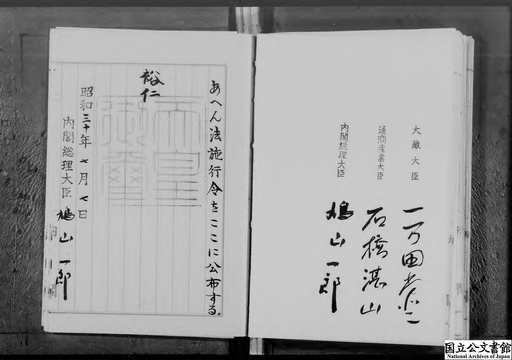 大蔵大臣
一万田尚登
通商産業大臣
石橋湛山
内閣総理大臣
鳩山一郎
あへん法施行令をここに公布する。
裕仁
天皇御璽
昭和三十年七月七日
内閣総理大臣 鳩山一郎
国立公文書館
National Archives of Japan